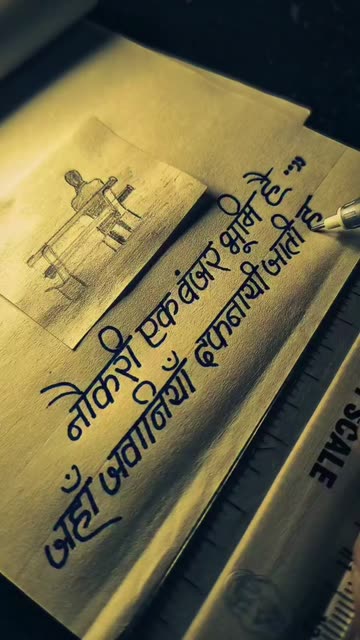 नौकरी एक बंजर भूमि है...
जहाँ जवानियाँ दफनायी जाती ह
SCALE